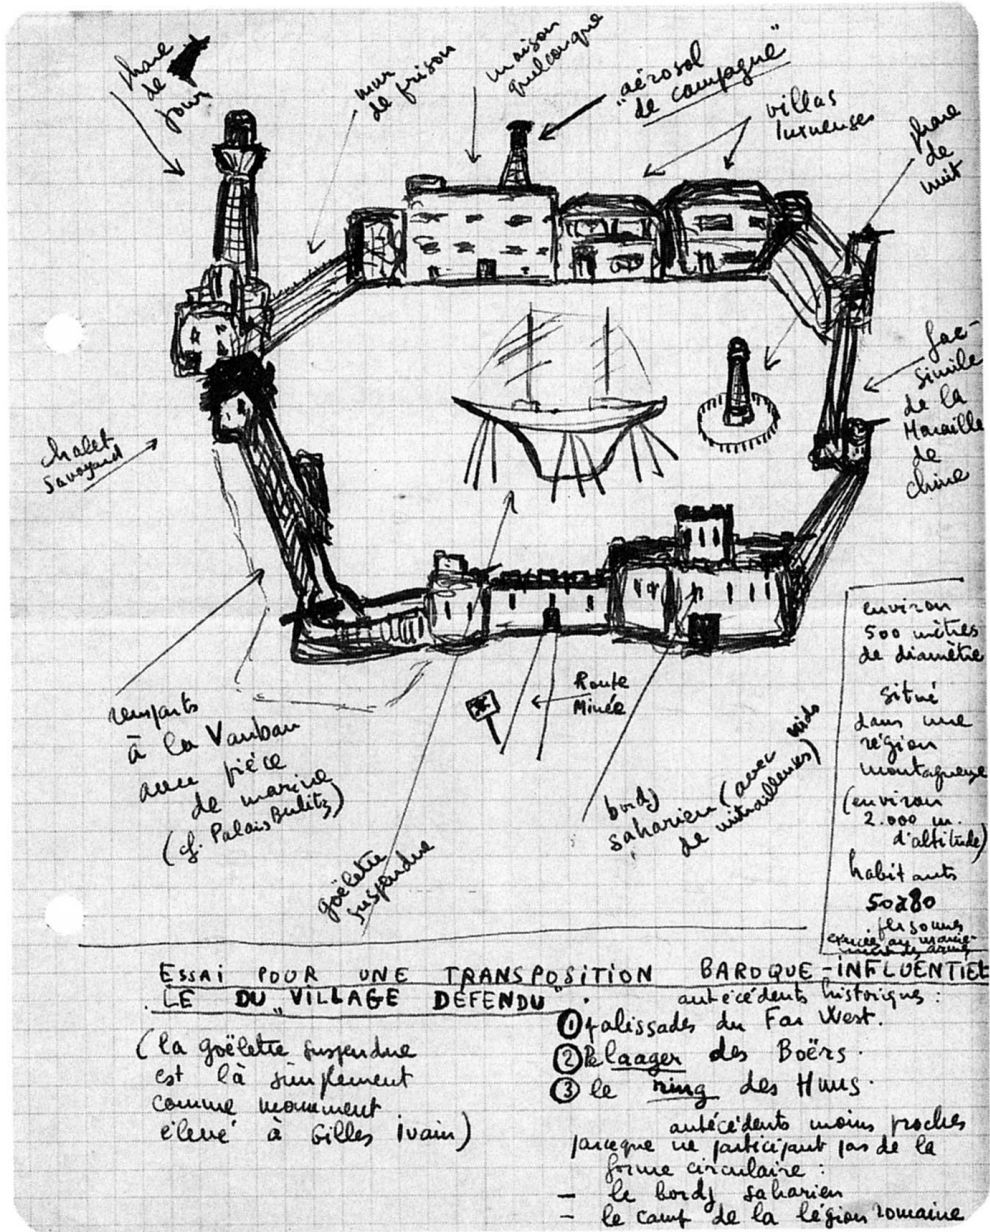 phare
de
jour
mur
de prison
maison
quelconque
"aérosol
de campagne"
villas
luxueuses
phare
de
nuit
fac-
similé
de la
Muraille
de
chine
chalet
savoyard
remparts
à la Vauban
avec pièce
de marine
(cf. Palais
goëlette
suspendue
Route
Minée
bordj
saharien (avec nids
de mitrailleuses)
environ
500 mètres
de diamètre
situé
dans une
région
montagneuse
(environ
2.000 m.
d'altitude)
habitants
50 à 80
personnes
ESSAI POUR UNE TRANSPOSITION BAROQUE-INFLUENTIEL
LE DU "VILLAGE DÉFENDU".
(la goëlette suspendue
est là simplement
comme monument
élevé à Gilles Ivain)
antécédents historiques :
① palissades du Far West.
② le laager des Boërs.
③ le ring des Huns.
antécédents moins proches
parceque ne participant pas de la
forme circulaire :
- le bordj saharien
- le camp de la légion romaine